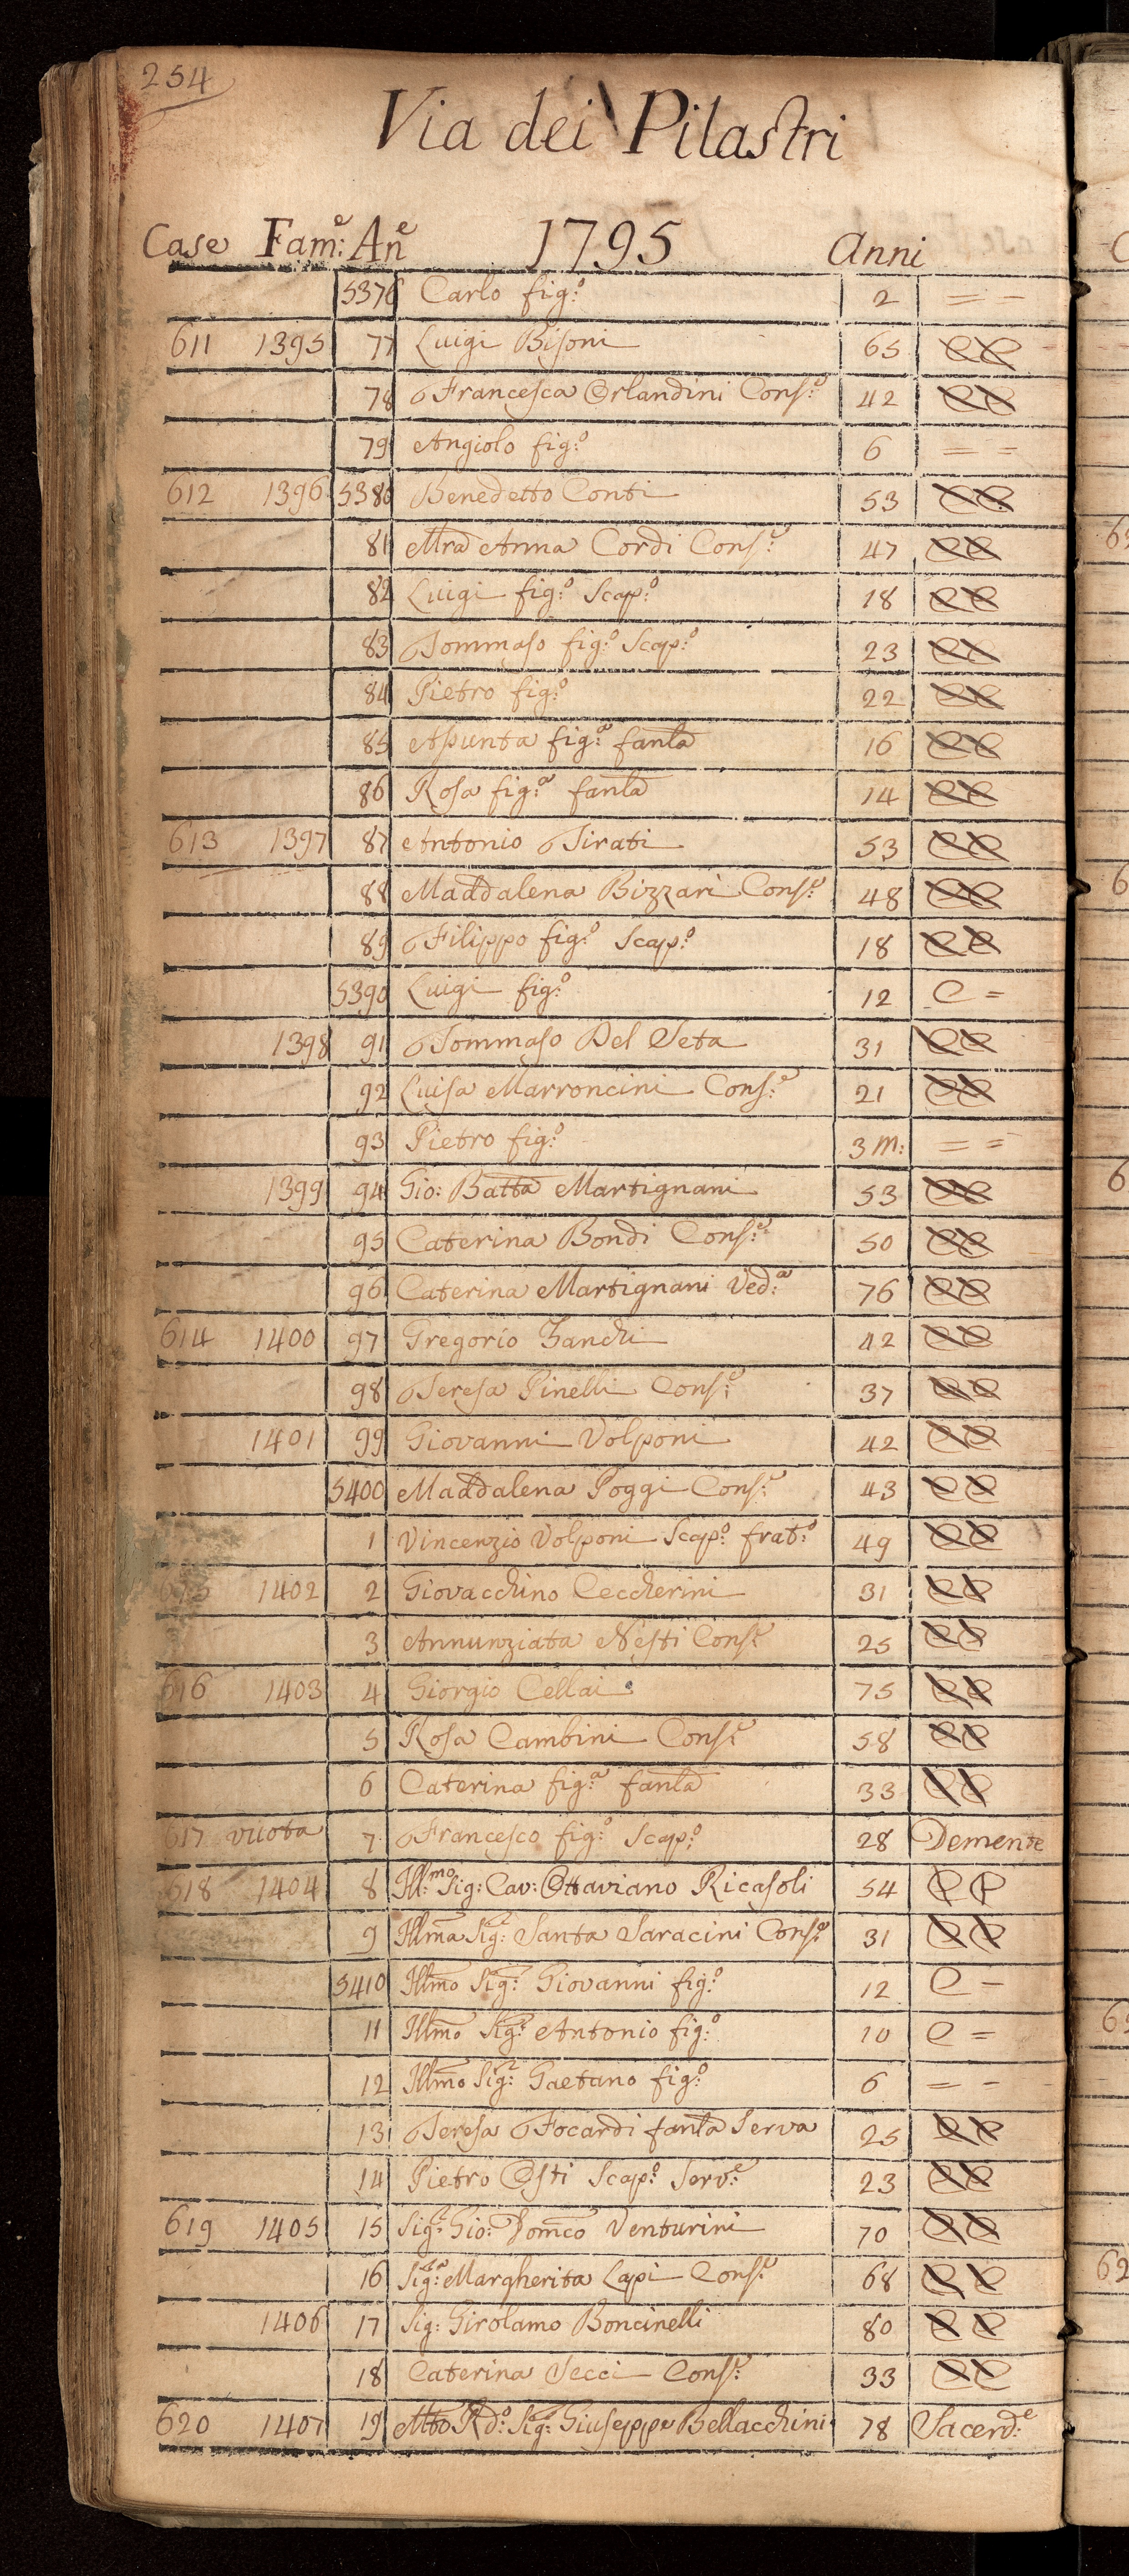 254
Via dei Pilastri
Case Fam:e An:e 1795 Anni
5376 Carlo fig:o 2 = =
611 1395 77 Luigi Bisoni 65 CC
78 Francesca Orlandini Cons:e 42 CC
79 Angiolo fig:o 6 = =
612 1396 5380 Benedetto Conti 53 CC
81 Mra Anna Cordi Cons:e 47 CC
82 Luigi fig:o Scap:o 18 CC
83 Tommaso fig:o Scap:o 23 CC
84 Pietro fig:o 22 CC
85 Assunta fig:a fanla 16 CC
86 Rosa fig:a fanla 14 CC
613 1397 87 Antonio Tirati 53 CC
88 Maddalena Bizzari Cons:e 48 CC
89 Filippo fig:o Scap:o 18 CC
5390 Luigi fig:o 12 C =
1398 91 Tommaso Del Seta 31 CC
92 Luisa Marroncini Cons:e 21 CC
93 Pietro fig:o 3 m: = =
1399 94 Gio: Batta Martignani 53 CC
95 Caterina Bondi Cons:e 50 CC
96 Caterina Martignani Ved:a 76 CC
614 1400 97 Gregorio Zanchi 42 CC
98 Teresa Pinelli Cons:e 37 CC
1401 99 Giovanni Volponi 42 CC
5400 Maddalena Poggi Cons:e 43 CC
1 Vincenzio Volponi Scap:o frat:o 49 CC
615 1402 2 Giovacchino Ceccherini 31 CC
3 Annunziata Nesti Cons:e 25 CC
616 1403 4 Giorgio Cellai 75 CC
5 Rosa Cambini Cons:e 58 CC
6 Caterina fig:a fanla 33 CC
617 vuota 7 Francesco fig:o Scap:o 28 Demente
618 1404 8 Ill:mo Sig: Cav: Ottaviano Ricasoli 54 CC
9 Illma Sig:ra Santa Saracini Cons:e 31 CC
5410 Illmo Sig:r Giovanni fig:o 12 C =
11 Illmo Sig:r Antonio fig:o 10 C =
12 Illmo Sig:r Gaetano fig:o 6 = =
13 Teresa Focardi fanla Serva 25 CC
14 Pietro Osti Scap:o Serv:e 23 CC
619 1405 15 Sig:r Gio: Domco Venturini 70 CC
16 Sig:ra Margherita Lapi Cons:e 68 CC
1406 17 Sig: Girolamo Boncinelli 80 CC
18 Caterina Secci Cons:e 33 CC
620 1407 19 Mto Rdo: Sig:r Giuseppe Bellacchini 78 Sacerd:e